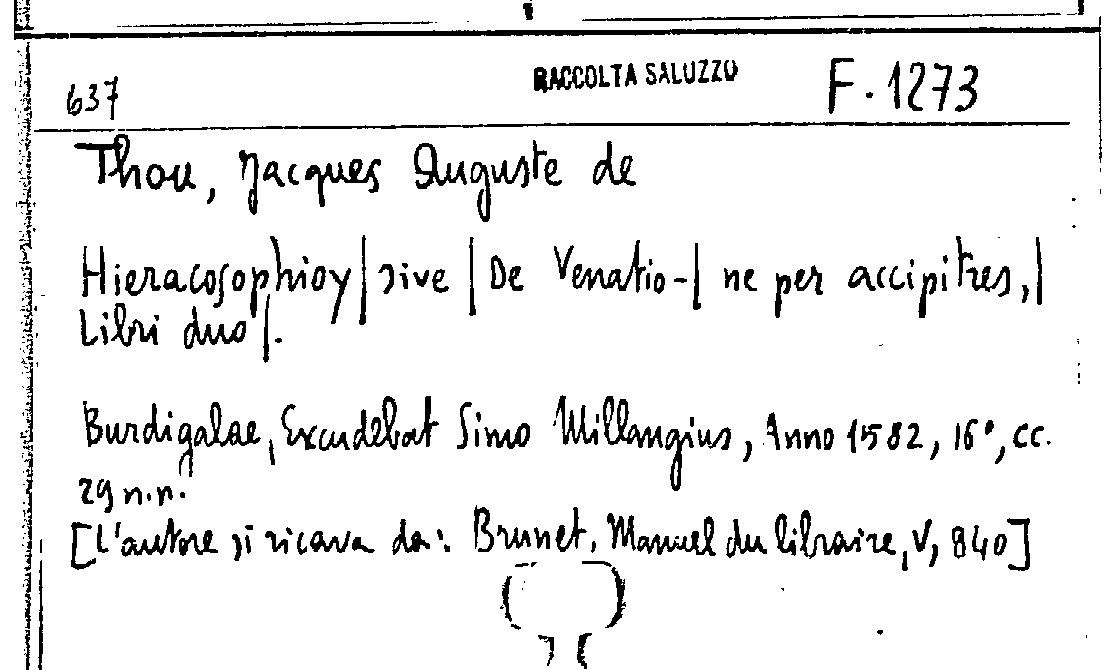 637 RACCOLTA SALUZZO F. 1273
Thou, Jacques Auguste de
Hieracosophioy | sive | De Venatio- | ne per accipitres, |
Libri duo |.
Burdigalae, Excudebat Simo Millangius, Anno 1582, 16°, cc.
29 n.n.
[L'autore si ricava da: Brunet, Manuel du libraire, V, 840]